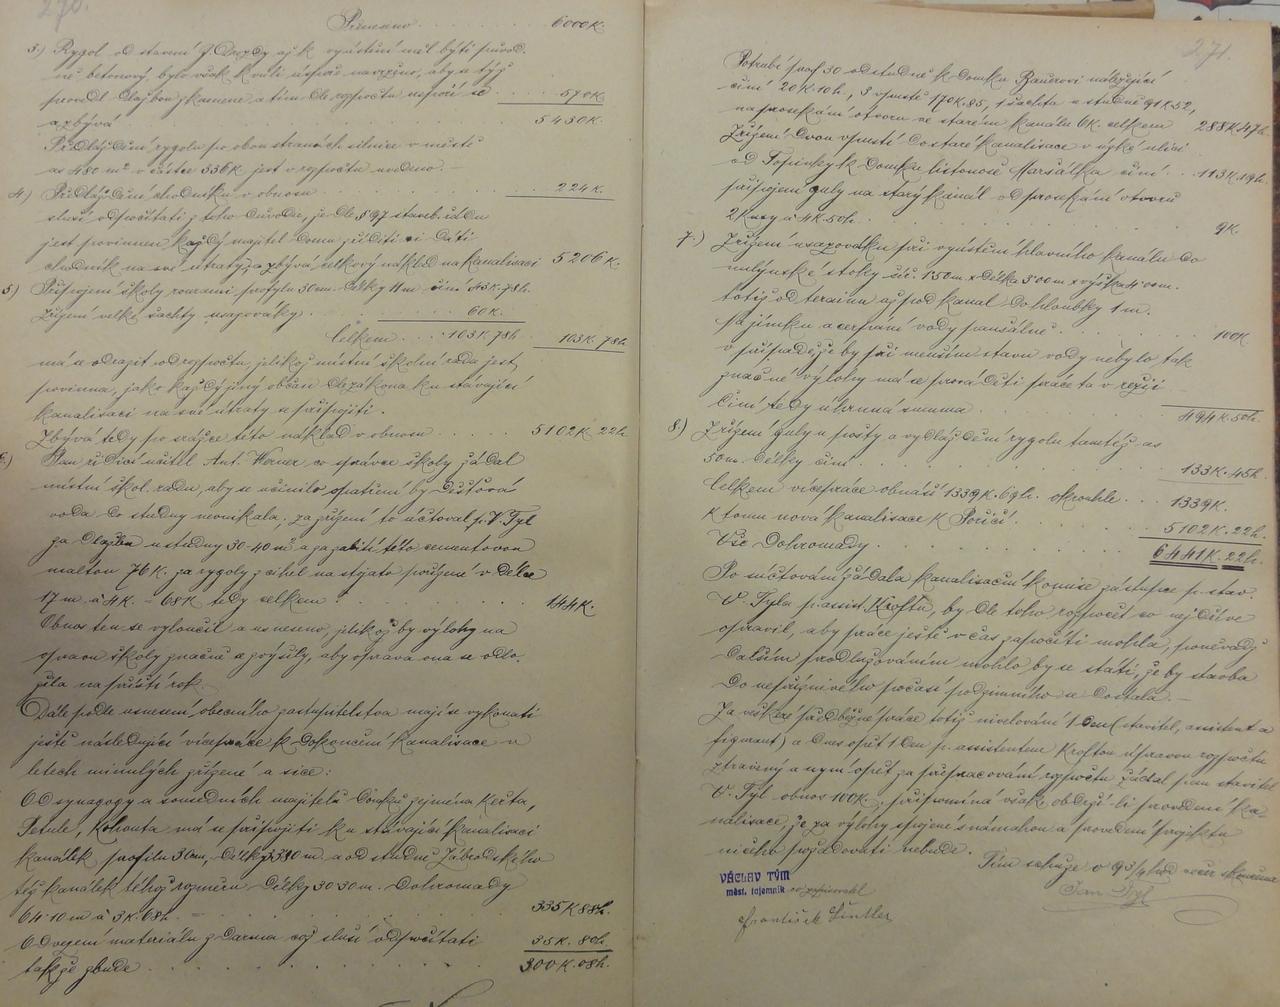 270.
Přeneseno . . . . . 6000K.
3.) Rygol od stavení J. Drozdy až k vyústění měl býti původ-
ně betonový, bylo však kvůli úspoře navrženo, aby se týž
provedl dlažbou z kamene a tím dle rozpočtu uspoří se . . . . 570K.
a zbývá . . . . . 5430K.
Předláždění rygolu po obou stranách silnice v městě
as 480 m² v částce 336K jest v rozpočtu uvedeno.—
4.) Předláždění chodníku v obnosu . . . . 224K.
sluší odpočítati z toho důvodu, že dle § 97 staveb. řádu
jest povinnen každý majitel domu zříditi si dáti
chodník na své útraty, a zbývá celkový náklad na kanalisaci 5206K.
5.) Připojení školy rourami profilu 30cm. délky 11m čin 43K.78h.
zřízení velké šachty usazováky . . 60K.
Celkem . . 103K 78h 103K.78h
má se odrazit od rozpočtu, jelikož místní školní rada jest
povinna, jako každý jiný občan dle zákona ku stávající
kanalisaci na své útraty se připojiti.
Zbývá tedy po srážce této náklad v obnosu . . . . 5102K 22h.
6.) Pan řídící učitel Ant. Werner co správce školy žádal
místní škol. radu, aby se učinilo opatření by dešťová
voda do studny nevnikala, za zřízení to účtoval p. V. Tyl
za dlažbu u studny 30-40 m² a za zalití této cementovou
maltou 76K. za rygoly z cihel na stojato pořízené v délce
17m á 4K. = 68K tedy celkem . . . . 144K.
Obnos ten se vyloučil a usneseno, jelikož by výlohy na
opravu školy značně se zvýšily, aby oprava ona se odlo-
žila na příští rok.
Dále podle usnesení obecního zastupitelstva mají se vykonati
ještě následující vícepráce k dokončení kanalisace v
letech minulých zřízené a sice:
Od synagogy a sousedních majitelů domků zejména Kerta,
Petule, Kohouta má se připojiti ku stávající kanalisaci
kanálek profilu 30cm, délky 33·80 m. a od studně Zábrodského
týž kanálek téhož rozměru délky 30·30 m. Dohromady
64·10m á 3K.68h. . . . . 335K 88h.
Odvezení materiálu zdarma což sluší odpočítati 35K. 80h.
takže zbude . . . . . 300K.08h.
271.
Potrubí prof 30 od studně k domku Bauerovi náležející
činí 20K.10h, 3 vpustě 170K.85, 1 šachta u studně 91K52,
na prosekání otvoru ve starém kanálu 6K. celkem 288K47h.
Zřízení dvou vpustí do staré kanalisace v úzké ulici
od Topinky k domku listonoše Maršálka činí . . 113K.19h.
připojení guly na starý kanál od prosekání otvoru
2 kusy á 4K.50h. . . . . 9K.
7.) Zřízení usazováku při vyústění hlavního kanálu do
mlýnské stoky šíř. 1·50m x délka 3·00m x výška 4·00m.
totiž od terrainu až pod kanál do hloubky 1m.
Na jímku a čerpání vody paušálně . . . . 100K.
v případě, že by při menším stavu vody nebylo tak
značné výlohy má se prováděti práce ta v režii
činí tedy úhrnná summa . . . . 494K.50h.
8.) Zřízení guly u pošty a vydláždění rygolu tamtéž as
50m. délky činí . . . . 133K.45h.
Celkem vícepráce obnáší 1339K.69h. okrouhle . . . 1339K.
K tomu nová kanalisace k Poříčí . . . . 5102K.22h.
Vše dohromady . . . . 6441K.22h.
Po súčtování žádala kanalisační komise zástupce p. stav.
V. Tyla p. assist. Kroftu, by dle toho rozpočet co nejdříve
opravil, aby práce ještě v čas započíti mohla, poněvadž
dalším prodlužováním mohlo by se státi, že by stavba
do nepříznivého počasí podzimního se dostala.—
Za veškeré předběžné práce totiž nivelování 1 den (stavitel, assistent a
figurant) a dnes opět 1 den p. assistentem Kroftou úpravou rozpočtu
ztrávený a nyní opět za přepracování rozpočtu žádal pan stavitel
V. Tyl obnos 100K., připomíná však obdrží-li provedení ka-
nalisace, že za výlohy spojené s námahou a provedení projektu
ničeho požadovati nebude.
Tím schůze o 9 3/4 hod večer skončena
VÁCLAV TÝM
měst. tajemník co zapisovatel
Jan Tyl
František Šintler